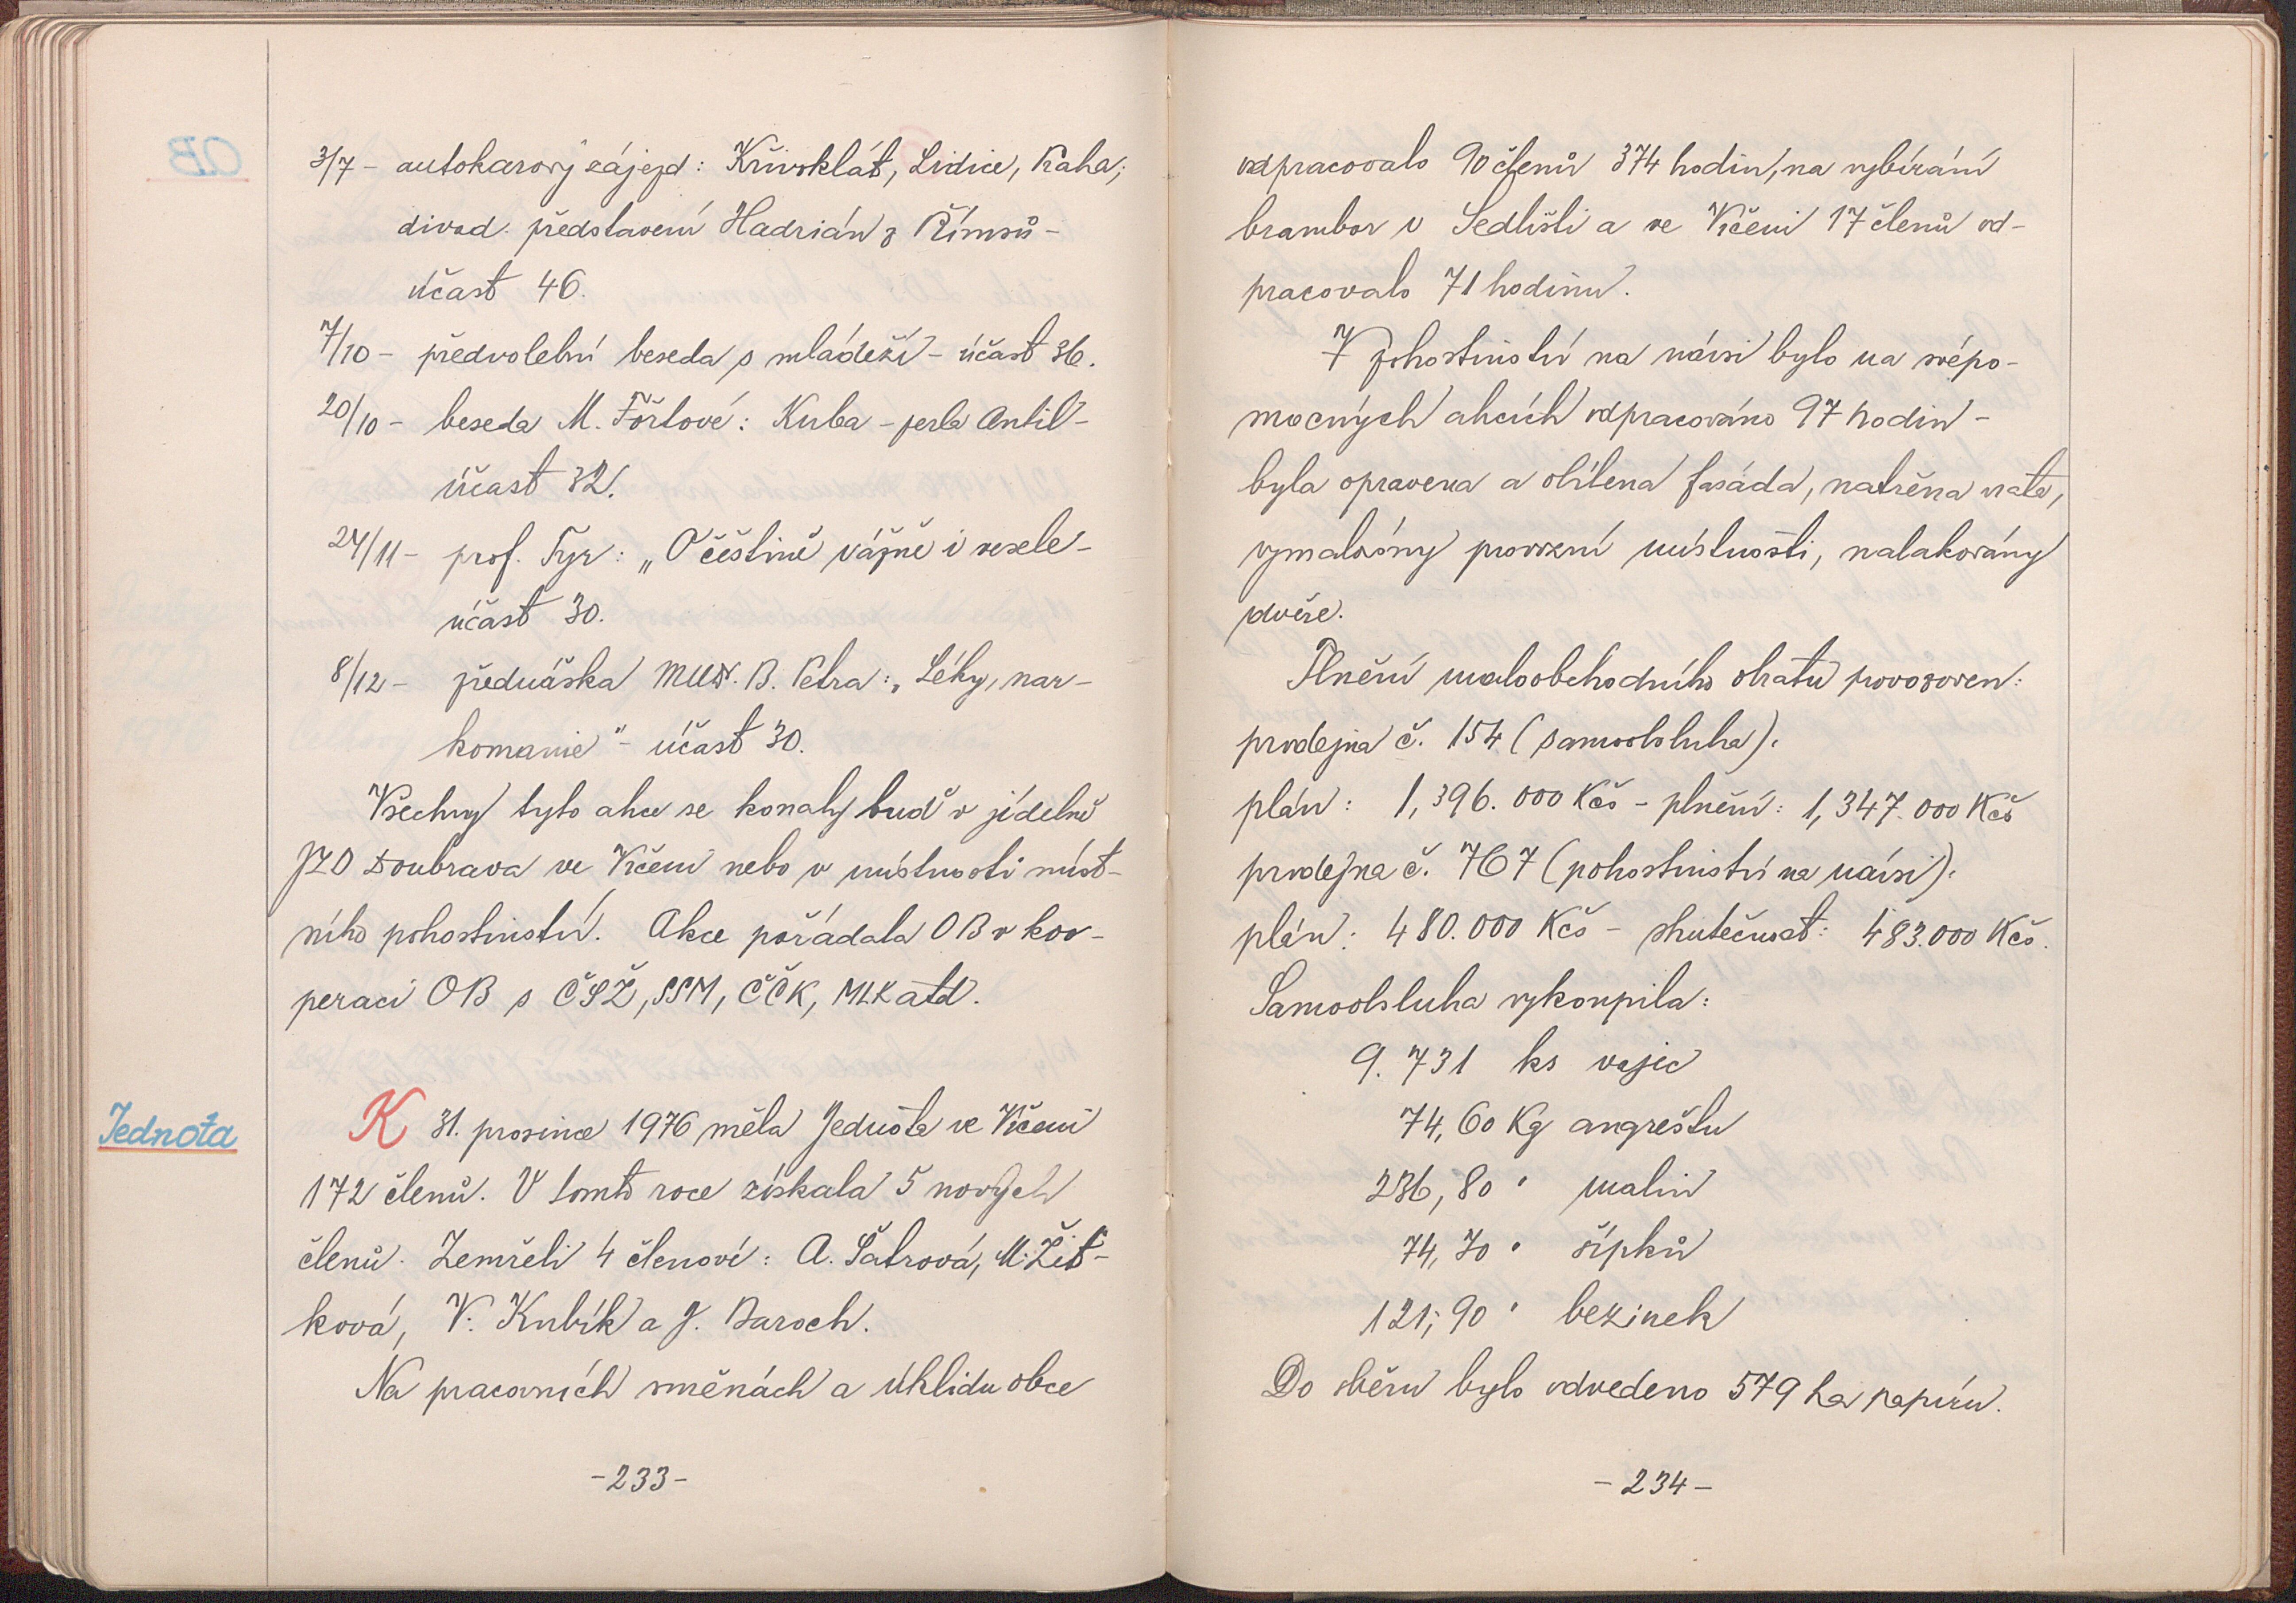 3/7 - autokarový zájezd: Křivoklát, Lidice, Praha;
divad. představení Hadrián z Římsů -
účast 46.
7/10 - předvolební beseda s mládeží - účast 36.
20/10 - beseda M. Fořtové: Kuba - perla Antil -
účast 32.
24/11 - prof. Tyr: „O češtině vážně i vesele -
účast 30.
8/12 - přednáška MUDr. B. Petra: „Léky, nar-
komanie" - účast 30.
Všechny tyto akce se konaly buď v jídelně
JZD Doubrava ve Vrčeni nebo v místnosti míst-
ního pohostinství. Akce pořádala OB v koo-
peraci OB s ČSŽ, SSM, ČČK, MLK atd.
Jednota
K 31. prosince 1976 měla Jednota ve Vrčeni
172 členů. V tomto roce získala 5 nových
členů. Zemřeli 4 členové: A. Šatrová, M. Žit-
ková, V. Kubík a J. Baroch.
Na pracovních směnách a úklidu obce
-233-
odpracovalo 90 členů 374 hodin, na vybírání
brambor v Sedlišti a ve Vrčeni 17 členů od-
pracovalo 71 hodinu.
V pohostinství na návsi bylo na svépo-
mocných akcích odpracováno 97 hodin -
byla opravena a obílena fasáda, natřena vrata,
vymalovány provozní místnosti, nalakovány
dveře.
Plnění maloobchodního obratu provozoven:
prodejna č. 154 (samoobsluha):
plán: 1,396.000 Kčs - plnění: 1,347.000 Kčs
prodejna č. 767 (pohostinství na návsi):
plán: 480.000 Kčs - skutečnost: 483.000 Kčs.
Samoobsluha vykoupila:
9.731 ks vajec
74,60 Kg angreštu
236,80 " malin
74,70 " šípků
121,90 " bezinek
Do sběru bylo odvedeno 579 kg papíru.
-234-